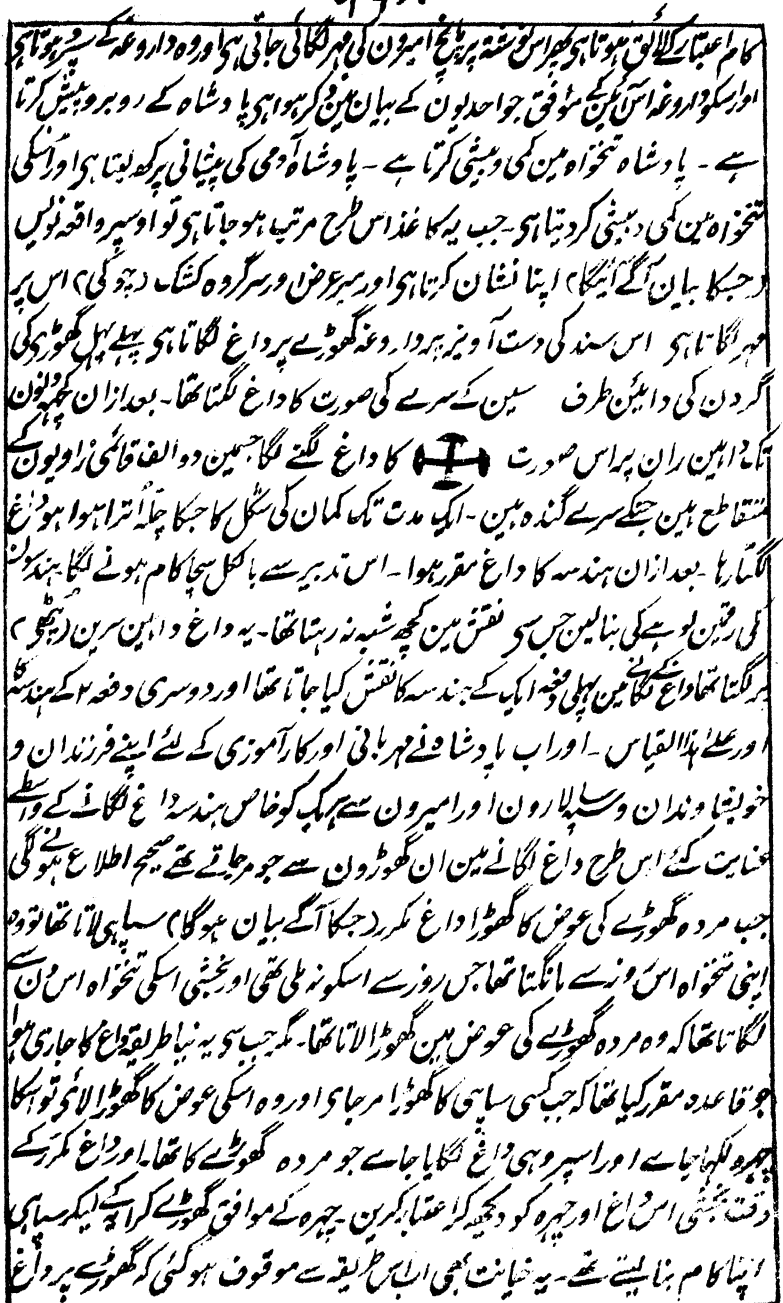 کام اعتبار کے لائق ہوتا ہی پھر اس نوشتہ پر پانچ امیرون کی مہر لگائی جاتی ہی اور وہ داروغہ کے سپرد ہوتا ہی
اور اسکو داروغہ اس آئین کے موافق جو احدیون کے بیان مین ذکر ہوا ہی پادشاہ کے روبرو پیش کرتا
ہے ۔ پادشاہ تنخواہ مین کمی و بیشی کرتا ہے ۔ پادشاہ آدمی کی پیشانی پرکھ لیتا ہی اور اُسکی
تنخواہ مین کمی و بیشی کر دیتا ہی ۔ جب یہ کاغذ اس طرح مرتب ہو جاتا ہی تو اوسپر واقعہ نویس
( جسکا بیان آگے آئیگا ) اپنا نشان کرتا ہی اور میر عرض اور سرگروہ کشک ( چوکی ) اس پر
مہر لگاتا ہی اس سند کی دست آویز پر داروغہ گھوڑے پر داغ لگاتا ہی پہلے پہل گھوڑی کی
گردن کی داہین طرف سین کے سرے کی صورت کا داغ لگتا تھا ۔ بعد ازان کچھ دنون
تک داہین ران پر اس صورت کا داغ لگنے لگا جسمین دو الف قائمی زاویون کے
متقاطع ہین جنکے سرے گندہ ہین ۔ ایک مدت تک کمان کی شکل کا جسکا چلہ اُترا ہوا ہو داغ
لگتا رہا ۔ بعد ازان ہندسہ کا داغ مقرر ہوا ۔ اس تدبیر سے بالکل سچا کام ہونے لگا ہندسون
کی رقمین لوہے کی بنالین جس سی نقش مین کچھ شبہ نہ رہتا تھا ۔ یہ داغ داہین سرین ( پٹھی )
پر لگتا تھا داغ لگانے مین پہلی دفعہ ایک کے ہندسہ کا نقش کیا جاتا تھا اور دوسری دفعہ ۲ کے ہندسہ کا
اور علےٰ ہذا القیاس ۔ اور اب پادشاہ نے مہربانی اور کارآموزی کے لئے اپنے فرزندان و
خویشاوندان و سپہ سالارون اور امیرون سے ہر یک کو خاص ہندسہ داغ لگانے کے واسطے
عنایت کئے اس طرح داغ لگانے مین ان گھوڑون سے جو مر جاتے تھے صحیح اطلاع ہونے لگی
جب مردہ گھوڑے کی عوض کا گھوڑا داغ مکرر ( جسکا آگے بیان ہوگا ) سپاہی لاتا تھا تو وہ
اپنی تنخواہ اس روز سے مانگتا تھا جس روز سے اسکو نہ ملی تھی اور بخشی اسکی تنخواہ اس دن سے
لگاتا تھا کہ وہ مردہ گھوڑے کی عوض مین گھوڑا لاتا تھا ۔ مگر جب سی یہ نیا طریقہ داغ کا جاری ہوا
جو قاعدہ مقرر کیا تھا کہ جب کسی سپاہی کا گھوڑا مر جای اور وہ اسکی عوض کا گھوڑا لائی تو اسکا
چہرہ لکھا جاے اور اسپر وہی داغ لگایا جاے جو مردہ گھوڑے کا تھا ۔ اور داغ مکرر کے
وقت بخشی اس داغ اور چہرہ کو دیکھ کر اعتبار کرین ۔ چہرہ کے موافق گھوڑے کرایہ کے لیکر سپاہی
اپنا کام بنا لیتے تھے ۔ یہ خیانت بھی اب اس طریقہ سے موقوف ہو گئی کہ گھوڑے پر داغ